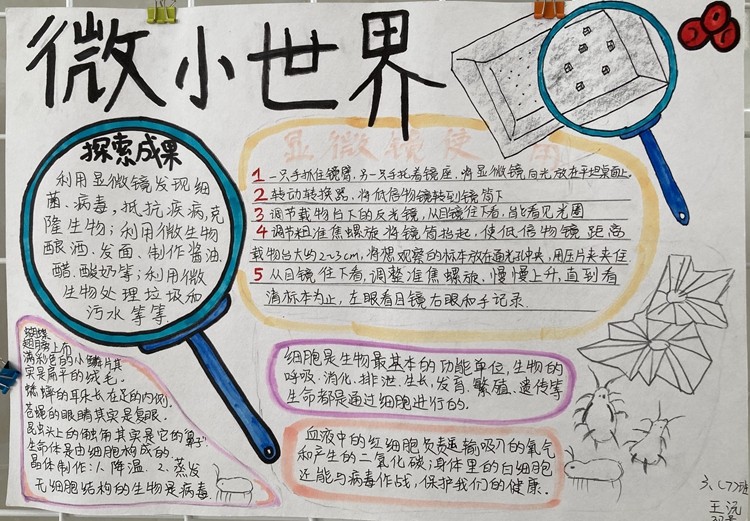 微小世界
探索成果
利用显微镜发现细
菌、病毒,抵抗疾病,克
隆生物;利用微生物
酿酒、发面、制作酱油、
醋、酸奶等;利用微
生物处理垃圾和
污水等等.
显微镜使用
1 一只手抓住镜臂,另一只手托着镜座,将显微镜向光放在平坦桌面上。
2 转动转换器、将低倍物镜转到镜筒下
3 调节载物台下的反光镜,从目镜往下看,当能看见光圈
4 调节粗准焦螺旋将镜筒抬起,使低倍物镜距离
载物台大约2~3cm,将想观察的标本放在通光孔中央,用压片夹夹住
5 从目镜往下看,调整准焦螺旋,慢慢上升,直到看
清标本为止,左眼看目镜右眼和手记录.
蝴蝶
翅膀上布
满彩色的小鳞片其
实是扁平的绒毛。
蟋蟀的耳朵长在足的内侧。
苍蝇的眼睛其实是复眼.
昆虫头上的触角其实是它的"鼻子".
生命体是由细胞构成的.
晶体制作:1.降温 2.蒸发
无细胞结构的生物是病毒.
细胞是生物最基本的功能单位,生物的
呼吸、消化、排泄、生长、发育、繁殖、遗传等
生命都是通过细胞进行的.
血液中的红细胞负责运输吸入的氧气
和产生的二氧化碳;身体里的白细胞
还能与病毒作战,保护我们的健康.
六、(7)班